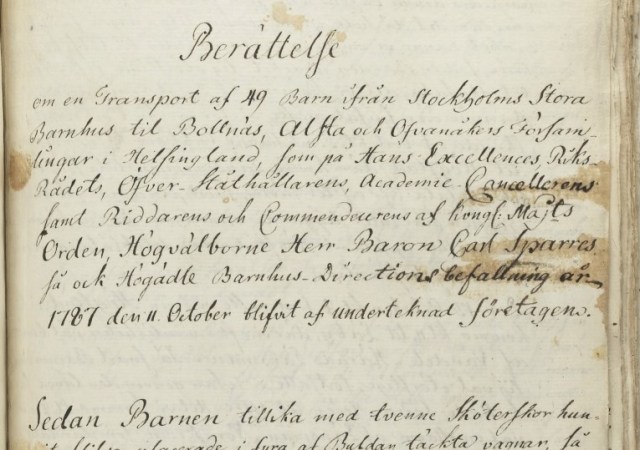 Berättelse
om en Transport af 49 Barn ifrån Stockholms Stora
Barnhus til Bollnäs, Alfta och Ofvanåkers Församlingar i Helsingland, som på Hans Excellences, Riks-
Rådets, Öfver-Ståthållarens, Academie-Cancellerens
samt Riddarens och Commendeurens af kongl: Majts
Orden, Högvälborne Herr Baron Carl Sparres
så ock Högädle Barnhus-Directions befallning år
1787 den 11 October blifvit af underteknad företagen.
Sedan Barnen tillika med tvenne Sköterskor hun-
blifva placerade i fyra af Buldan täckta vagnar, så